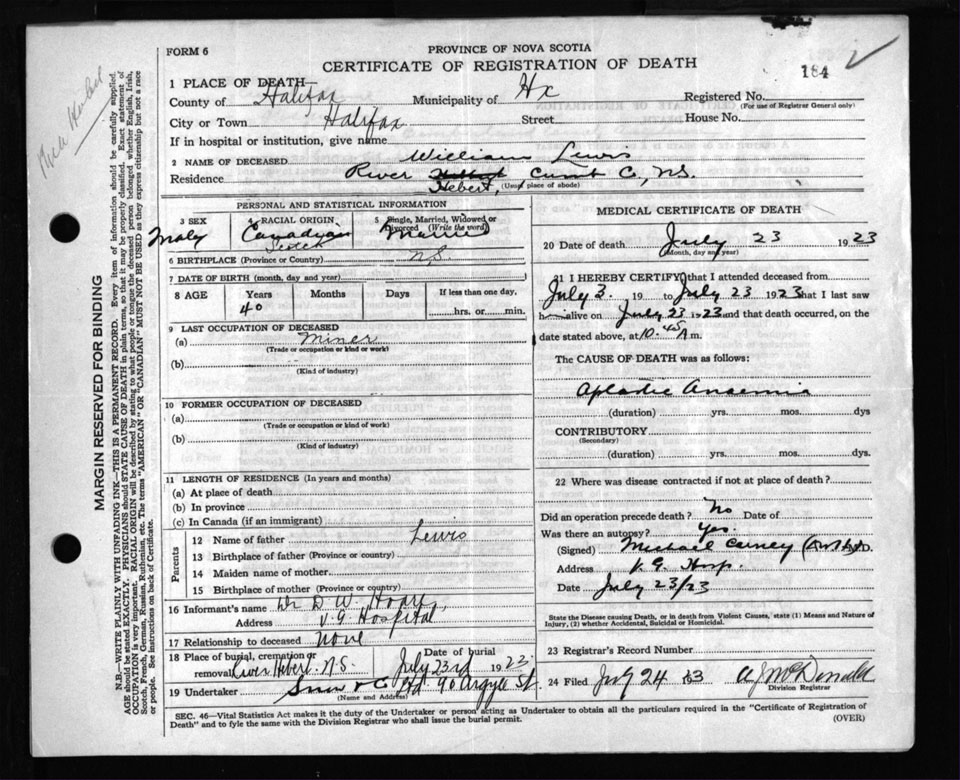 FORM 6
PROVINCE OF NOVA SCOTIA
CERTIFICATE OF REGISTRATION OF DEATH
184
1 PLACE OF DEATH—
County of Halifax Municipality of Hx Registered No.
(For use of Registrar General only)
City or Town Halifax Street House No.
If in hospital or institution, give name
2 NAME OF DECEASED William Lewis
Residence River Hebert, Cumb Co, N.S.
(Usual place of abode)
PERSONAL AND STATISTICAL INFORMATION
3 SEX Male
4 RACIAL ORIGIN Canadian Scotch
5 Single, Married, Widowed or Divorced (Write the word) Married
6 BIRTHPLACE (Province or Country) N.S.
7 DATE OF BIRTH (month, day and year)
8 AGE Years Months Days If less than one day,
40 hrs. or min.
9 LAST OCCUPATION OF DECEASED
(a) Miner
(Trade or occupation or kind of work)
(b)
(Kind of industry)
10 FORMER OCCUPATION OF DECEASED
(a)
(Trade or occupation or kind of work)
(b)
(Kind of industry)
11 LENGTH OF RESIDENCE (In years and months)
(a) At place of death
(b) In province
(c) In Canada (if an immigrant)
Parents
12 Name of father Lewis
13 Birthplace of father (Province or country)
14 Maiden name of mother
15 Birthplace of mother (Province or country)
16 Informant's name Dr D. W.
Address V.G Hospital
17 Relationship to deceased None
18 Place of burial, cremation or removal River Hebert. N.S. Date of burial July 23rd 1923
19 Undertaker Snow & Co Ltd 90 Argyle St.
(Name and Address)
MEDICAL CERTIFICATE OF DEATH
20 Date of death July 23 1923
(Month, day and year)
21 I HEREBY CERTIFY that I attended deceased from
July 3. 19 to July 23 1923 that I last saw
h alive on July 23 1923 and that death occurred, on
date stated above, at 10.45 A m.
The CAUSE OF DEATH was as follows:
Aplastic Anaemia
(duration) yrs. mos. dys
CONTRIBUTORY
(Secondary)
(duration) yrs. mos. dys.
22 Where was disease contracted if not at place of death?
Did an operation precede death? No Date of
Was there an autopsy? Yes.
(Signed) Michael Carney M.D.
Address V. G. Hosp.
Date July 23/23
State the Disease causing Death, or in death from Violent Causes, state (1) Means and Nature of
Injury, (2) whether Accidental, Suicidal or Homicidal.
23 Registrar's Record Number
24 Filed July 24 23 A J McDonald
Division Registrar
SEC. 46—Vital Statistics Act makes it the duty of the Undertaker or person acting as Undertaker to obtain all the particulars required in the "Certificate of Registration of
Death" and to fyle the same with the Division Registrar who shall issue the burial permit.
(OVER)
MARGIN RESERVED FOR BINDING
N.B.—WRITE PLAINLY WITH UNFADING INK—THIS IS A PERMANENT RECORD. Every item of information should be carefully supplied.
AGE should be stated EXACTLY. PHYSICIANS should STATE CAUSE OF DEATH in plain terms, so that it may be properly classified. Exact statement of
OCCUPATION is very important. RACIAL ORIGIN will be described by stating to what people or tongue the deceased person belonged whether English, Irish,
Scotch, French, German, Russian, Ruthenian, etc. The terms "AMERICAN" OR "CANADIAN" MUST NOT BE USED as they express citizenship but not a race
or people. See instructions on back of Certificate.